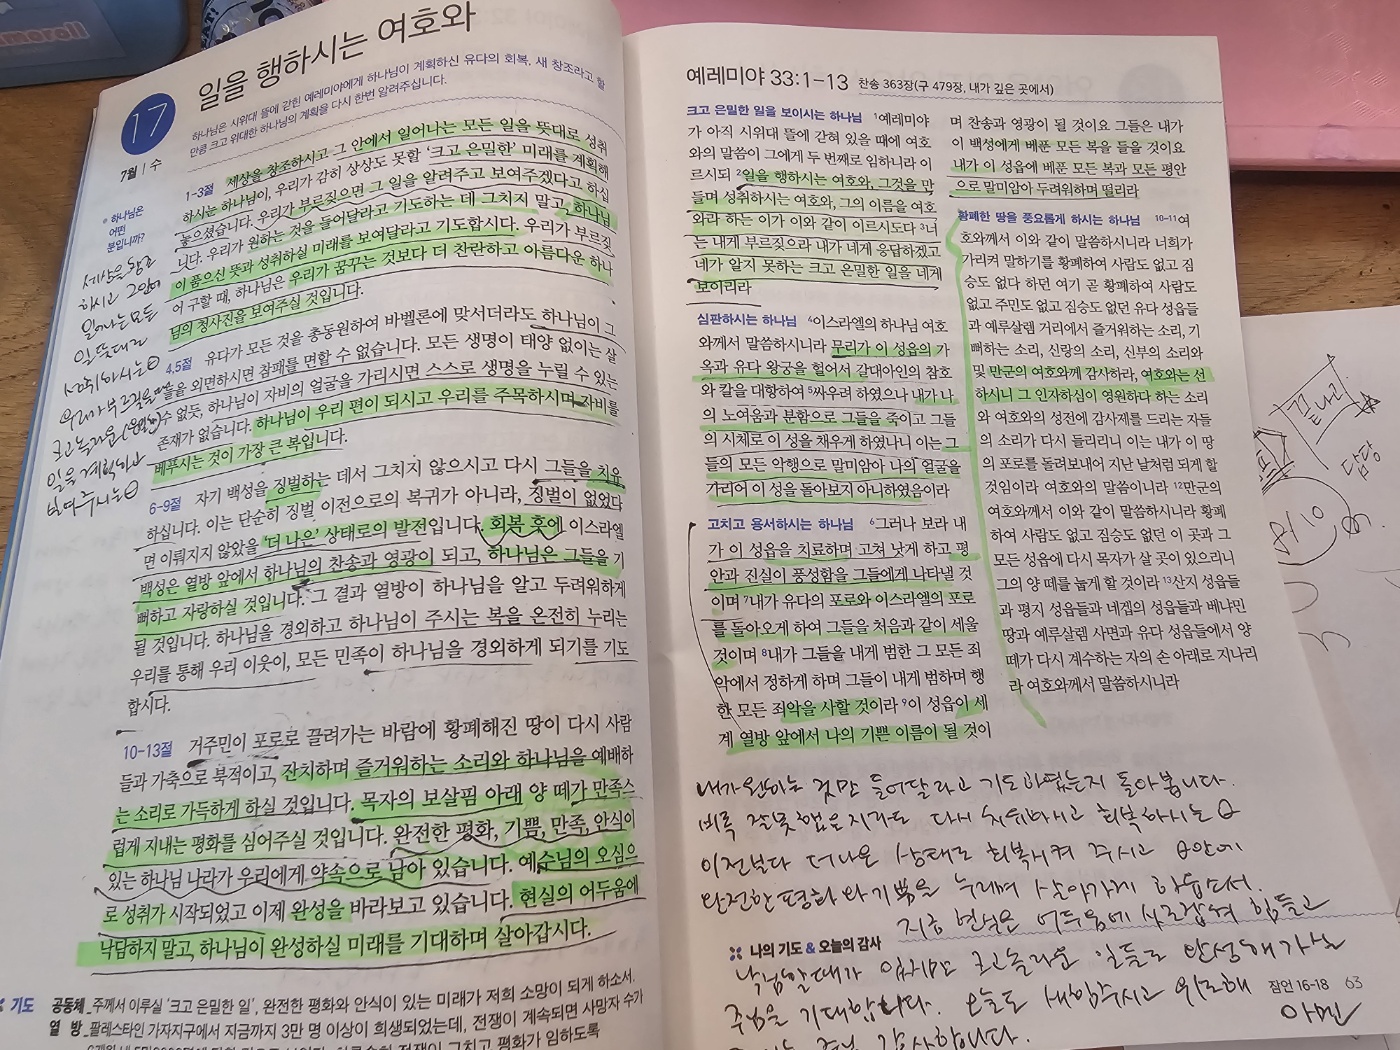 일을 행하시는 여호와
17
7월 | 수
하나님은 시위대 뜰에 갇힌 예레미야에게 하나님이 계획하신 유다의 회복, 새 창조라고 할
만큼 크고 위대한 하나님의 계획을 다시 한번 알려주십니다.
하나님은
어떤
분입니까?
세상을 창조
하시고 그 안에
일어나는 모든
일 뜻대로
성취하시는
우리가 부르짖을 때
크고 놀라운
일을 계획하고
보여주시는
1-3절 세상을 창조하시고 그 안에서 일어나는 모든 일을 뜻대로 성취
하시는 하나님이, 우리가 감히 상상도 못할 ‘크고 은밀한’ 미래를 계획해
놓으셨습니다. 우리가 부르짖으면 그 일을 알려주고 보여주겠다고 하십
니다. 우리가 원하는 것을 들어달라고 기도하는 데 그치지 말고, 하나님
이 품으신 뜻과 성취하실 미래를 보여달라고 기도합시다. 우리가 부르짖
어 구할 때, 하나님은 우리가 꿈꾸는 것보다 더 찬란하고 아름다운 하나
님의 청사진을 보여주실 것입니다.
4,5절 유다가 모든 것을 총동원하여 바벨론에 맞서더라도 하나님이 그
들을 외면하시면 참패를 면할 수 없습니다. 모든 생명이 태양 없이는 살
수 없듯, 하나님이 자비의 얼굴을 가리시면 스스로 생명을 누릴 수 있는
존재가 없습니다. 하나님이 우리 편이 되시고 우리를 주목하시며 자비를
베푸시는 것이 가장 큰 복입니다.
6-9절 자기 백성을 징벌하는 데서 그치지 않으시고 다시 그들을 치유
하십니다. 이는 단순히 징벌 이전으로의 복귀가 아니라, 징벌이 없었다
면 이뤄지지 않았을 ‘더 나은’ 상태로의 발전입니다. 회복 후에 이스라엘
백성은 열방 앞에서 하나님의 찬송과 영광이 되고, 하나님은 그들을 기
뻐하고 자랑하실 것입니다. 그 결과 열방이 하나님을 알고 두려워하게
될 것입니다. 하나님을 경외하고 하나님이 주시는 복을 온전히 누리는
우리를 통해 우리 이웃이, 모든 민족이 하나님을 경외하게 되기를 기도
합시다.
10-13절 거주민이 포로로 끌려가는 바람에 황폐해진 땅이 다시 사람
들과 가축으로 북적이고, 잔치하며 즐거워하는 소리와 하나님을 예배하
는 소리로 가득하게 하실 것입니다. 목자의 보살핌 아래 양 떼가 만족스
럽게 지내는 평화를 심어주실 것입니다. 완전한 평화, 기쁨, 만족, 안식이
있는 하나님 나라가 우리에게 약속으로 남아 있습니다. 예수님의 오심으
로 성취가 시작되었고 이제 완성을 바라보고 있습니다. 현실의 어두움에
낙담하지 말고, 하나님이 완성하실 미래를 기대하며 살아갑시다.
기도 공동체_주께서 이루실 ‘크고 은밀한 일’, 완전한 평화와 안식이 있는 미래가 저희 소망이 되게 하소서.
열 방_팔레스타인 가자지구에서 지금까지 3만 명 이상이 희생되었는데, 전쟁이 계속되면 사망자 수가
예레미야 33:1-13 찬송 363장(구 479장, 내가 깊은 곳에서)
크고 은밀한 일을 보이시는 하나님 1예레미야
가 아직 시위대 뜰에 갇혀 있을 때에 여호
와의 말씀이 그에게 두 번째로 임하니라 이
르시되 2일을 행하시는 여호와, 그것을 만
들며 성취하시는 여호와, 그의 이름을 여호
와라 하는 이가 이와 같이 이르시도다 3너
는 내게 부르짖으라 내가 네게 응답하겠고
네가 알지 못하는 크고 은밀한 일을 네게
보이리라
심판하시는 하나님 4이스라엘의 하나님 여호
와께서 말씀하시니라 무리가 이 성읍의 가
옥과 유다 왕궁을 헐어서 갈대아인의 참호
와 칼을 대항하여 5싸우려 하였으나 내가 나
의 노여움과 분함으로 그들을 죽이고 그들
의 시체로 이 성을 채우게 하였나니 이는 그
들의 모든 악행으로 말미암아 나의 얼굴을
가리어 이 성을 돌아보지 아니하였음이라
고치고 용서하시는 하나님 6그러나 보라 내
가 이 성읍을 치료하며 고쳐 낫게 하고 평
안과 진실이 풍성함을 그들에게 나타낼 것
이며 7내가 유다의 포로와 이스라엘의 포로
를 돌아오게 하여 그들을 처음과 같이 세울
것이며 8내가 그들을 내게 범한 그 모든 죄
악에서 정하게 하며 그들이 내게 범하며 행
한 모든 죄악을 사할 것이라 9이 성읍이 세
계 열방 앞에서 나의 기쁜 이름이 될 것이
며 찬송과 영광이 될 것이요 그들은 내가
이 백성에게 베푼 모든 복을 들을 것이요
내가 이 성읍에 베푼 모든 복과 모든 평안
으로 말미암아 두려워하며 떨리라
황폐한 땅을 풍요롭게 하시는 하나님 10-11여
호와께서 이와 같이 말씀하시니라 너희가
가리켜 말하기를 황폐하여 사람도 없고 짐
승도 없다 하던 여기 곧 황폐하여 사람도
없고 주민도 없고 짐승도 없던 유다 성읍들
과 예루살렘 거리에서 즐거워하는 소리, 기
뻐하는 소리, 신랑의 소리, 신부의 소리와
및 만군의 여호와께 감사하라, 여호와는 선
하시니 그 인자하심이 영원하다 하는 소리
와 여호와의 성전에 감사제를 드리는 자들
의 소리가 다시 들리리니 이는 내가 이 땅
의 포로를 돌려보내어 지난 날처럼 되게 할
것임이라 여호와의 말씀이니라 12만군의
여호와께서 이와 같이 말씀하시니라 황폐
하여 사람도 없고 짐승도 없던 이 곳과 그
모든 성읍에 다시 목자가 살 곳이 있으리니
그의 양 떼를 눕게 할 것이라 13산지 성읍들
과 평지 성읍들과 네겝의 성읍들과 베냐민
땅과 예루살렘 사면과 유다 성읍들에서 양
떼가 다시 계수하는 자의 손 아래로 지나리
라 여호와께서 말씀하시니라
내가 원하는 것만 들어달라고 기도하였는지 돌아봅니다.
비록 잘못했을지라도 다시 치유하시고 회복하시는
이전보다 더 나은 상태로 회복시켜 주시고 안에
완전한 평화와 기쁨을 누리며 살아가게 하옵소서.
지금 현실은 어두움에 사로잡혀 힘들고
나의 기도 & 오늘의 감사
낙심할 때가 있지만 크고 놀라운 일들로 완성해 가실
주님을 기대합니다. 오늘도 새힘주시고 위로해
감사합니다.
아멘
잠언 16-18 63
끝나고
담당